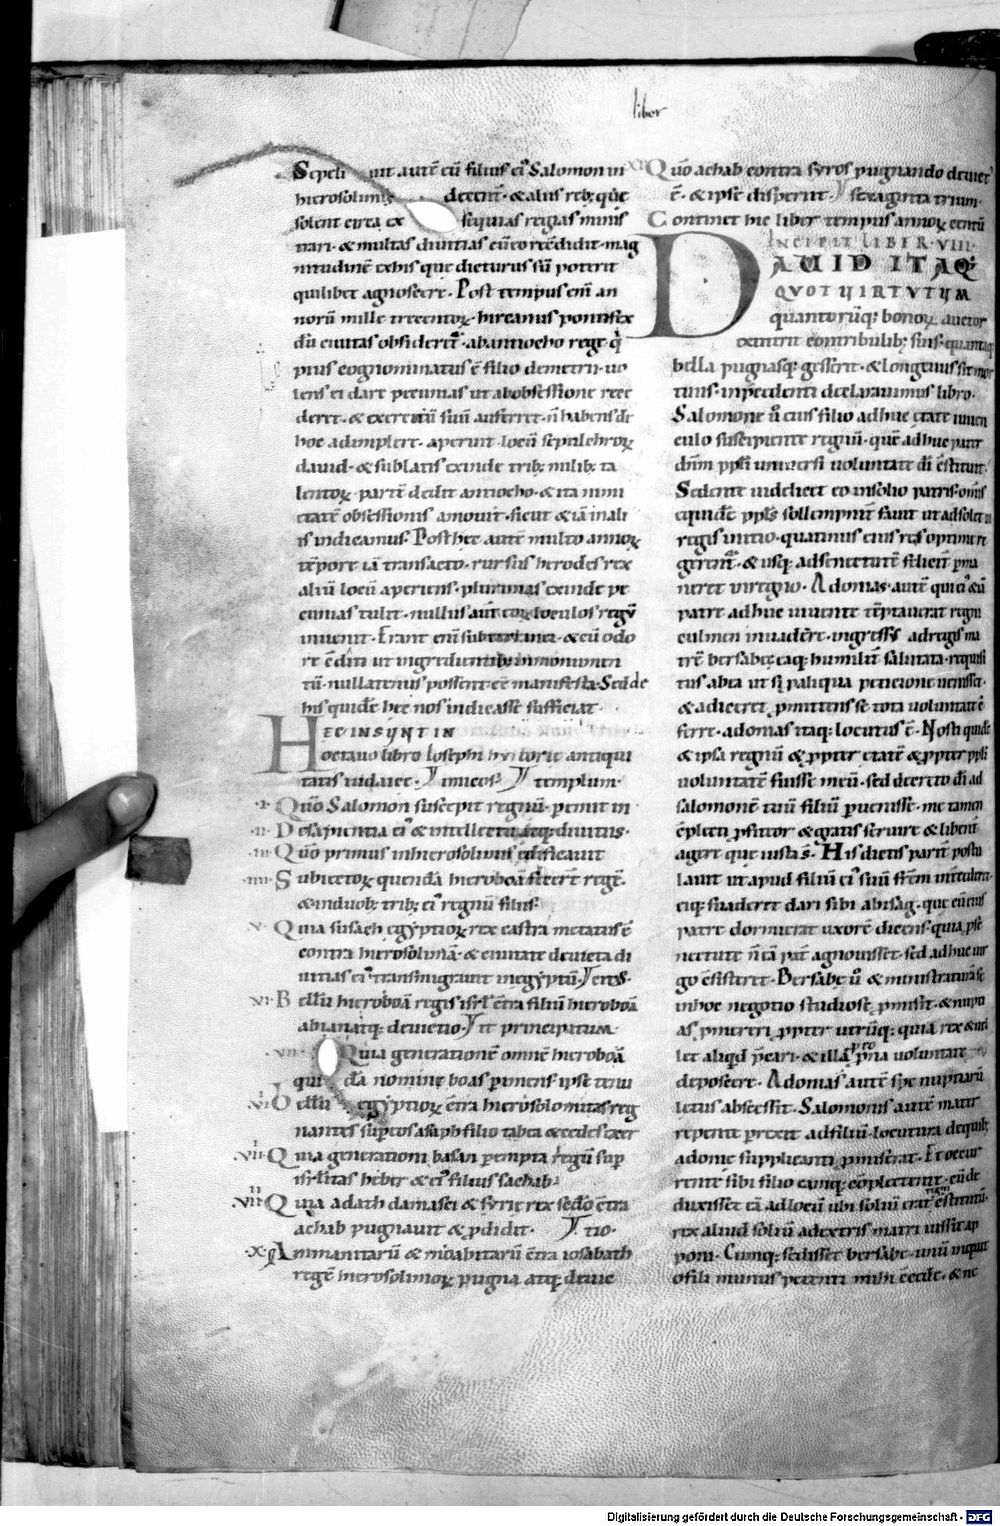 liber
Sepeli uit autē eū filius ei' Salomon in
hierosolimis decent̄ · & alias reb; que
solent circa ex sequias regias minis
trari · & multas diuitias cū eo recōdidit · mag
nitudinē exhis que dicturus sū poterit
quilibet agnoscere · Post tempus eni an
norū mille trecentoꝝ · hircanus pontifex
dū ciuitas obsideret · abantiocho rege q̇
pius cognominatus ē filio demetrii · uo
lens ei dare pecunias ut abobsessione rece
deret · & exercitū suū auferret · n̄ habens de
hoc adimplere · aperuit locū sepulchroꝝ
dauid · & sublatis exinde trib; milib; ta
lentoꝝ · partē dedit antiocho · & ita inmi
nitatē obsessionis amouit · sicut & iā inali
is indicamus · Post hec autē multo annoꝝ
tēpore iā transacto · rursus herodes rex
aliū locū aperiens · plurimas exinde pe
cunias tulit · nullus aut̄ eoꝝ loculos regū
inuenit · Erant eni subterranea · & cū odo
re cōditi ut ingredientib; inmonumen
tū · nullatenus possent eē manifesta · Sed de
his quidē hec nos indicasse sufficiat ·
HEC INSUNT IN
octauo libro Iosephi hystorie antiqui
tatis iudaice · imicos templum ·
· i · Quō Salomon suscepit regnū · pemit in
· ii · De sapientia ei' & intellectu atq; diuitiis ·
· iii · Quō primus inhierosolimis edificauit
· iiii · Subiectoꝝ quendā hieroboā fecere regē ·
& induob; trib; ei' regnū filius ·
· v · Quia susach egyptioꝝ rex castra metatus ē
contra hierosolimā · & ciuitate deuicta di
uitias ei' transmigrauit inegyptū · ces ·
· vi · Bellū hieroboā regis isrl' c̄tra filiū hieroboā
abian atq; deuictio · it principatum
· vii · Quia generationē omnē hieroboā
qui dā nomine boas pimens · ipse tenu
ellū egyptioꝝ c̄tra hierosolomitas reg
nantes sup eos asaph filio
Quia generationi basan perempta regnū sup
isrł'itas heber & ei' filius sachab
Quia adath damasci & syrie rex c̄tra
achab pugnauit & p̱didit · tio ·
· x · Ammanitarū & moabitarū c̄tra iosabath
regē hierosolimoꝝ pugna atq; deuic
xi Quō achab contra syros pugnando deuict'
ē · & ipse disperiit · sexaginta trium ·
Continet hic liber tempus annoꝝ centū
INCIPIT LIBER · VIII ·
DAUID ITAQ;
QUOT UIRTUTUM
quantorūq; bonoꝝ auctor
exteterit contribulib; suis · quantaq;
bella pugnasq; gesserit · & longeuus sit mor
tuus · inpcedenti declarauimus libro ·
Salomone ū eius filio adhuc etate iuuen
culo suscipiente regnū · quē adhuc pater
dn̄m ppli uniuersi uoluntate di cstituit ·
Sedente uidelicet eo insolio patris · om̄s
equidē ppls sollempnit' fauit ut adsolet in
regis initio · quatinus eius res optime re
gerent' · & usq; adsenectutē felicit' pma
neret uiregno · Adomas autē qui ei' & cū
patre adhuc uiuente tēptauerat regni
culmen inuadere · ingressus adregis ma
trē bersabee eaq; humilit' salutata · requisi
tus abea ut si p aliqua peticione uenisset ·
& adicere pmittens se tota uoluntate
ferre · adomas itaq; locutus ē · Nosti quidē
& ipsa regnū & ppter etatē & ppter ppli
uoluntatē fuisse meū · sed decreto di ad
salomonē tuū filiū puenisse · me tamen
cplecti pfiteor & gratis seruire & libent'
agere que iusta s̄ · His dictis paritē postu
lauit ut apud filiū ei' suū frēm
eiq; suaderet dari sibi abisag · que cū eius
patre dormierat uxorē dicens · quia pse
nectute n̄ eā pat' agnouisset · sed adhuc uir
go csisteret · Bersabe ū & ministraturā se
inhoc negotio studiose pmisit · & nupti
as pmereri ppter utrūq; quia rex & uel
let aliqd pcari · & illa pro p̄ria uoluntate
deposcere · Adomas autē spe nuptiarū
letus abscessit · Salomonis autē mater
repente prexit adfiliū · locutura dequib;
adonie supplicanti pmiserat · Et occur
rente sibi filio eamq; cplectente · cū de
duxisset eā adlocū ubi soliū erat cstitutū ·
rex aliud soliū adextris matri iussit ap
poni · Cumq; sedisset bersabe · unū inquit
o fili munus petenti mihi cede · & ne
Digitalisierung gefördert durch die Deutsche Forschungsgemeinschaft - DFG